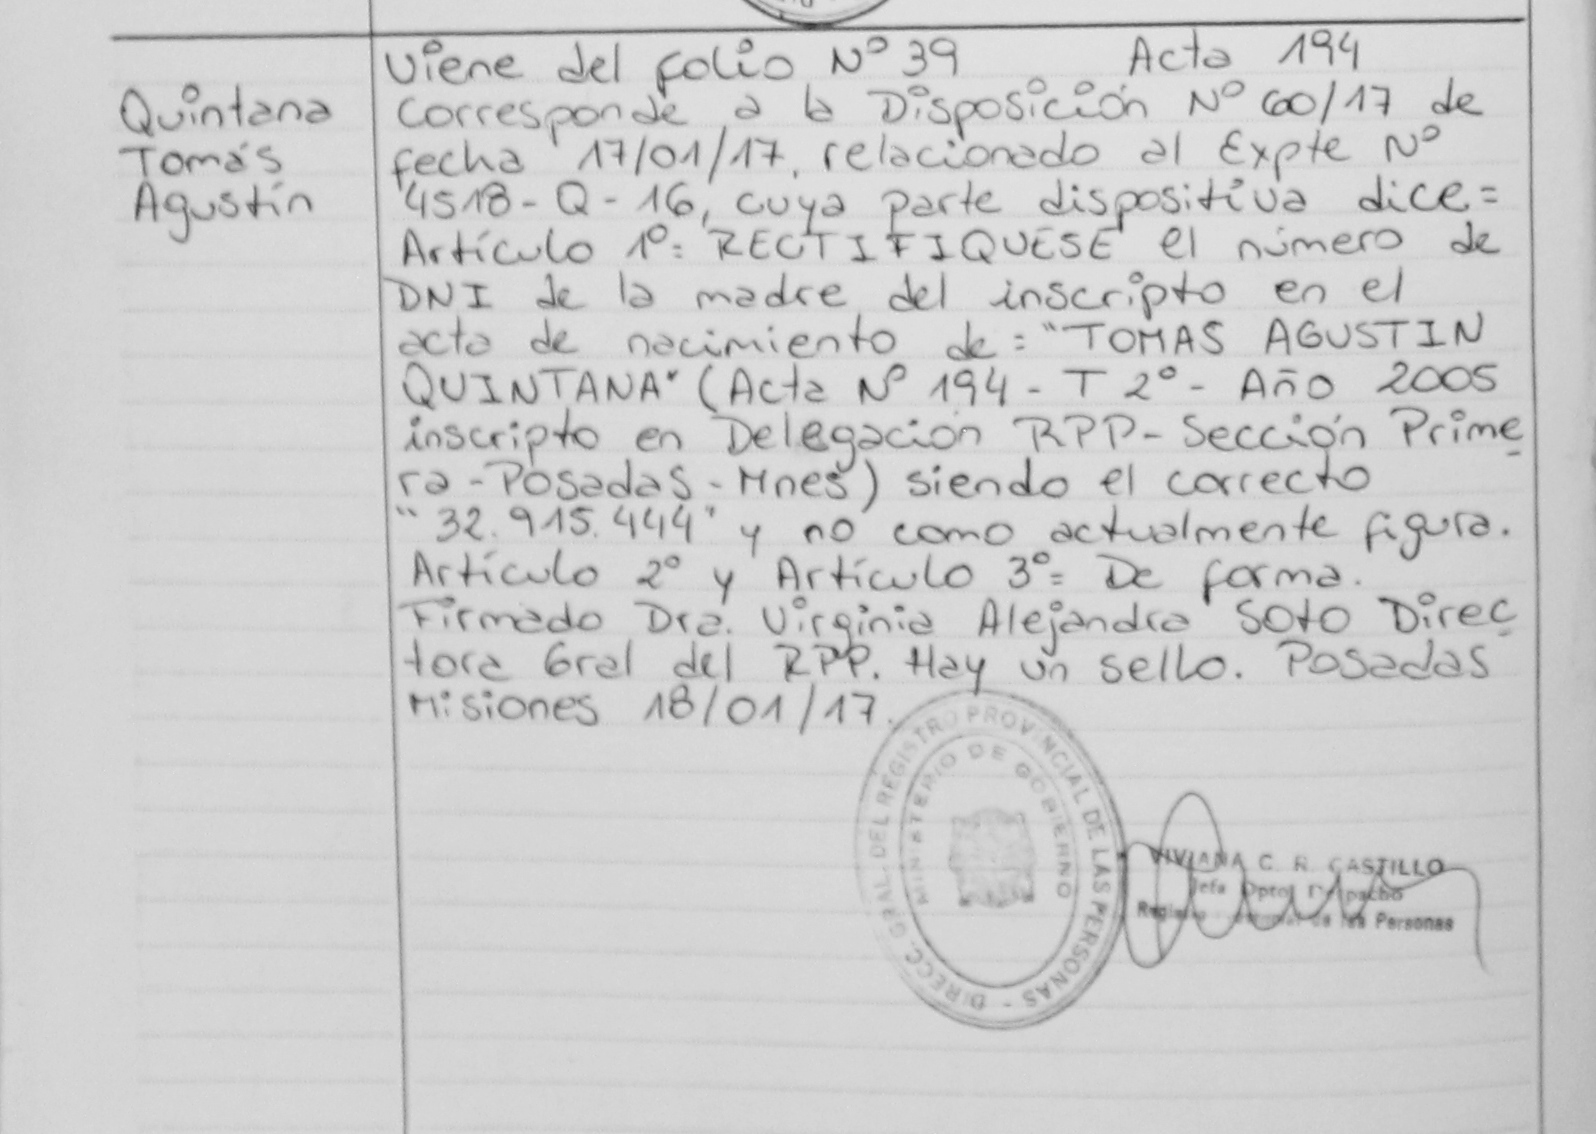 Viene del folio Nº 39 Acta 194
Quintana
Tomás
Agustín
Corresponde a la Disposición Nº 60/17 de
fecha 17/01/17, relacionado al Expte Nº
4518-Q-16, cuya parte dispositiva dice=
Artículo 1º= RECTIFIQUESE el número de
DNI de la madre del inscripto en el
acta de nacimiento de= "TOMAS AGUSTIN
QUINTANA" (Acta Nº 194 - T 2º - Año 2005
inscripto en Delegación RPP- Sección Prime
ra - Posadas - Mnes) siendo el correcto
"32.915.444" y no como actualmente figura.
Artículo 2º y Artículo 3º= De forma.
Firmado Dra. Virginia Alejandra Soto Direc
tora Gral del RPP. Hay un sello. Posadas
Misiones 18/01/17.
DIRECC. GRAL. DEL REGISTRO PROVINCIAL DE LAS PERSONAS -
MINISTERIO DE GOBIERNO
VIVIANA C. R. CASTILLO
Jefa Dpto.
de las Personas